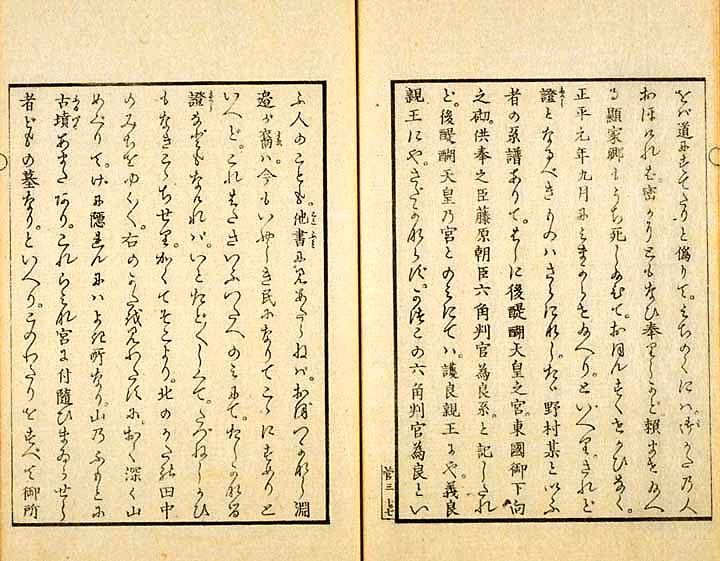 をば道にすてたりと偽りて。みちのくには。御かたの人
おほければ。密かにともなひ奉りしかど。頼ませ給へ
る顯家卿もうち死し
正平元年九月にみまからせ給へり。といへり。されど
證となるべきものはさらになし。たゞ野村某といふ
者の系譜ありて。そは後醍醐天皇之宮。東國御下向
之砌。供奉之臣藤原朝臣六角判官為良系。と記したれ
ど。後醍醐天皇乃宮とのみにては。護良親王にや。義良
親王にや。さだかならず。かつこの六角判官為良とい
ふ人のことも。他書に見あたらねば。おぼつかなし。淵
邉が裔は今もいやしき民になりてこゝにすめりと
いへど。これもたゞさいふつたへのみにて。たしかなる
證などもなければ。いとたど〳〵しくて。たづねしかひ
もなきこゝちせり。かくてそこより。北のかたの田中
のみちをゆく〳〵。右のかたを見わたすに。おく深く山
めぐりて。げに隠れんにはよき所なり。山乃ふもとに
古墳あまたあり。これらみな宮に付隨ひまゐらせし
者どもの墓なり。といへり。このわたりをすべて御所